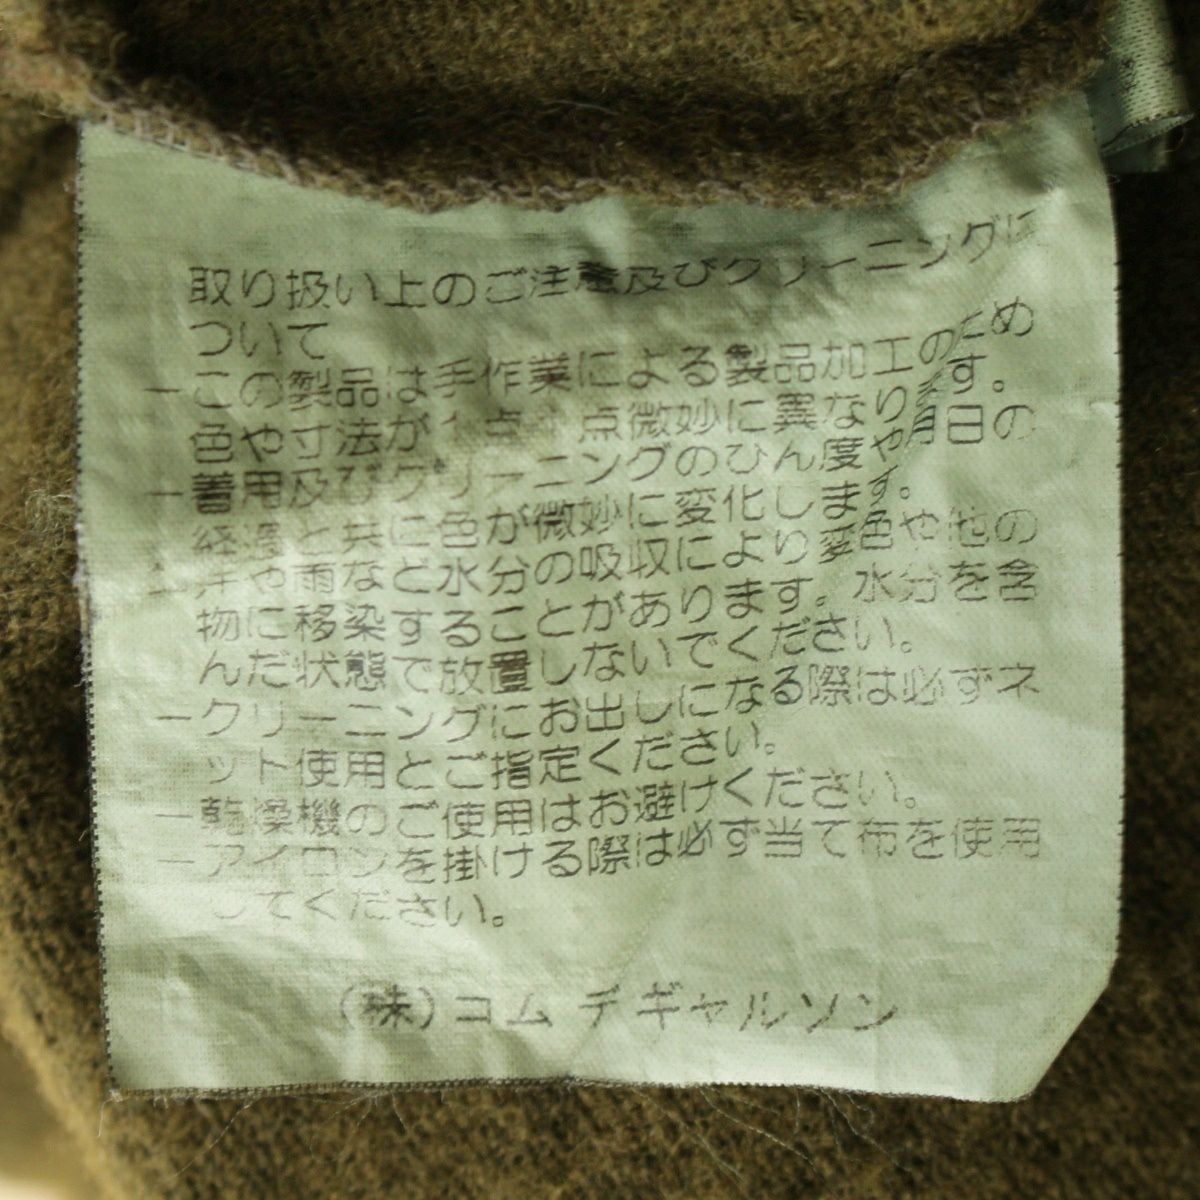 取り扱い上のご注意及びクリーニングに
ついて
−この製品は手作業による製品加工のため
色や寸法が1点1点微妙に異なります。
−着用及びクリーニングのひん度や月日の
経過と共に色が微妙に変化します。
−汗や雨など水分の吸収により変色や他の
物に移染することがあります。水分を含
んだ状態で放置しないでください。
−クリーニングにお出しになる際は必ずネ
ット使用とご指定ください。
−乾燥機のご使用はお避けください。
−アイロンを掛ける際は必ず当て布を使用
してください。
(株)コム デギャルソン